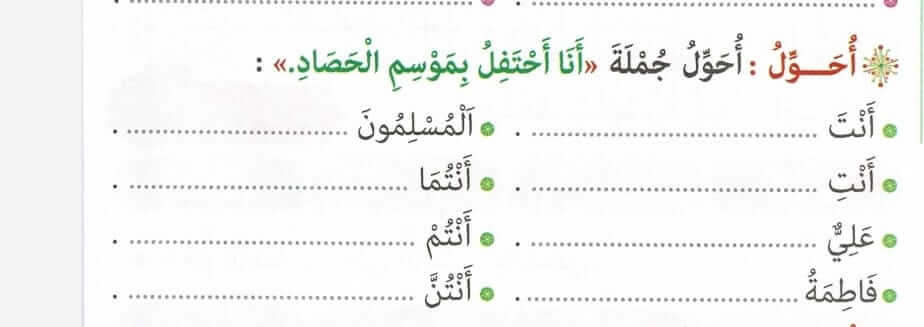 أُحَــوِّلُ : أُحَوِّلُ جُمْلَةَ «أَنَا أَحْتَفِلُ بِمَوْسِمِ الْحَصَادِ.» :
أَنْتَ ........................ . اَلْمُسْلِمُونَ ........................ .
أَنْتِ ........................ . أَنْتُمَا ........................ .
عَلِيٌّ ........................ . أَنْتُمْ ........................ .
فَاطِمَةُ ........................ . أَنْتُنَّ ........................ .